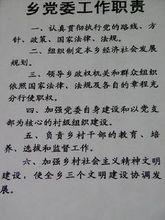 乡党委工作职责
一、认真贯彻执行党的路线、
方针、政策、国家法律、法规。
二、组织制定本乡经济社会发展
规划。
三、领导乡政权机关和群众组织
依照国家法律、法规及各自的章程充
分行使职权。
四、加强党委自身建设和以党支
部为核心的村级组织建设。
五、负责乡村干部的教育、培
养、选拔和监督工作。
六、加强乡村社会主义精神文明
建设，使全乡三个文明建设协调发
展。